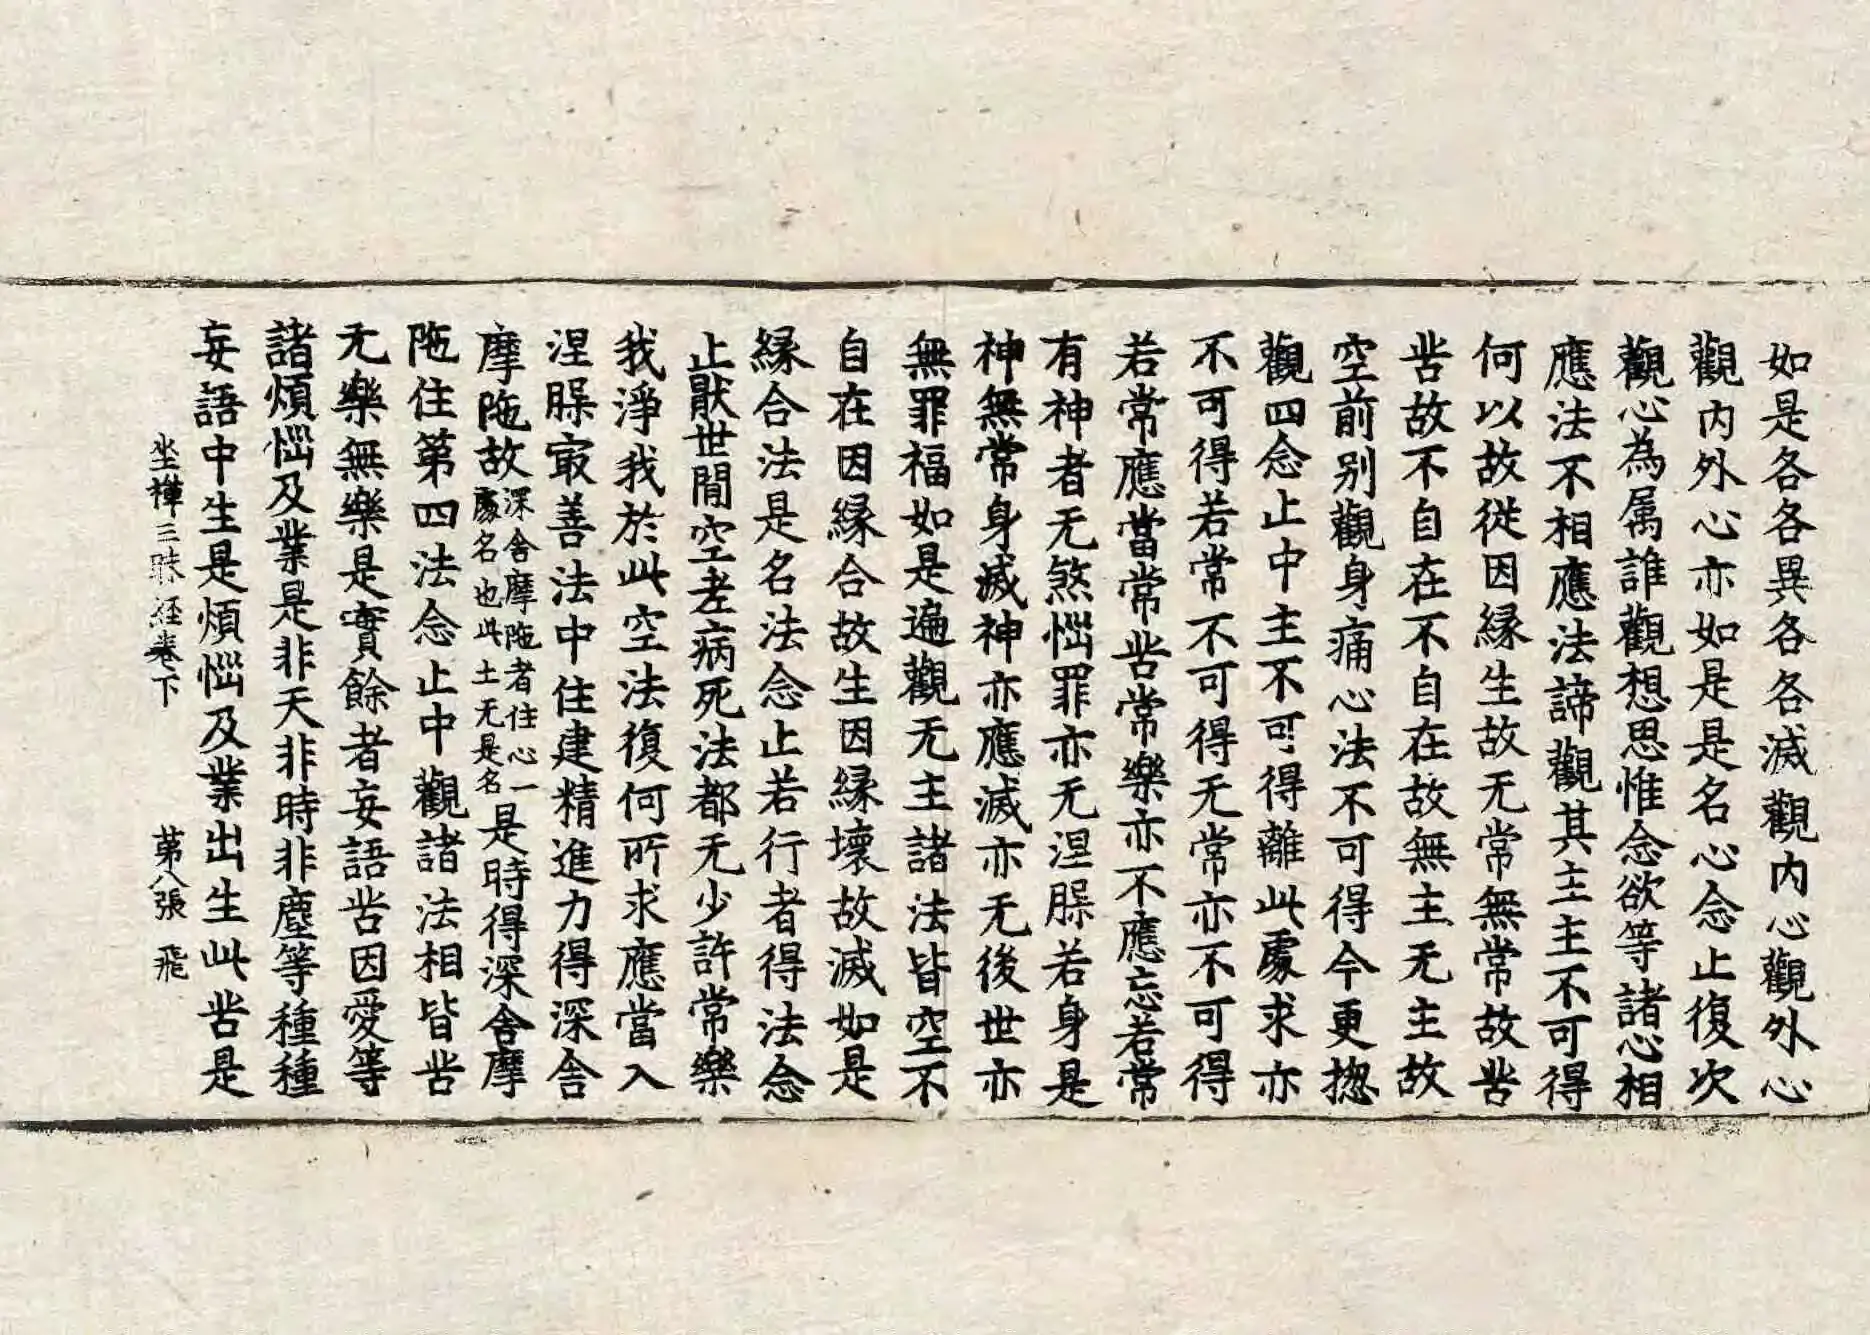 如是各各異各各滅觀內心觀外心
觀內外心亦如是是名心念止復次
觀心為属誰觀想思惟念欲等諸心相
應法不相應法諦觀其主主不可得
何以故從因縁生故无常無常故苦
苦故不自在不自在故無主无主故
空前别觀身痛心法不可得今更揔
觀四念止中主不可得離此處求亦
不可得若常不可得无常亦不可得
若常應當常苦常樂亦不應忘若常
有神者无煞惱罪亦无涅槃若身是
神無常身滅神亦應滅亦无後世亦
無罪福如是遍觀无主諸法皆空不
自在因縁合故生因縁壞故滅如是
縁合法是名法念止若行者得法念
止猒世間空老病死法都无少許常樂
我淨我於此空法復何所求應當入
涅槃㝡善法中住建精進力得深舍
摩陁故深舍摩陁者住心一處名也此土无是名是時得深舍摩
陁住第四法念止中觀諸法相皆苦
无樂無樂是實餘者妄語苦因愛等
諸煩惱及業是非天非時非塵等種種
妄語中生是煩惱及業出生此苦是
坐禪三昧経卷下 第八張 飛